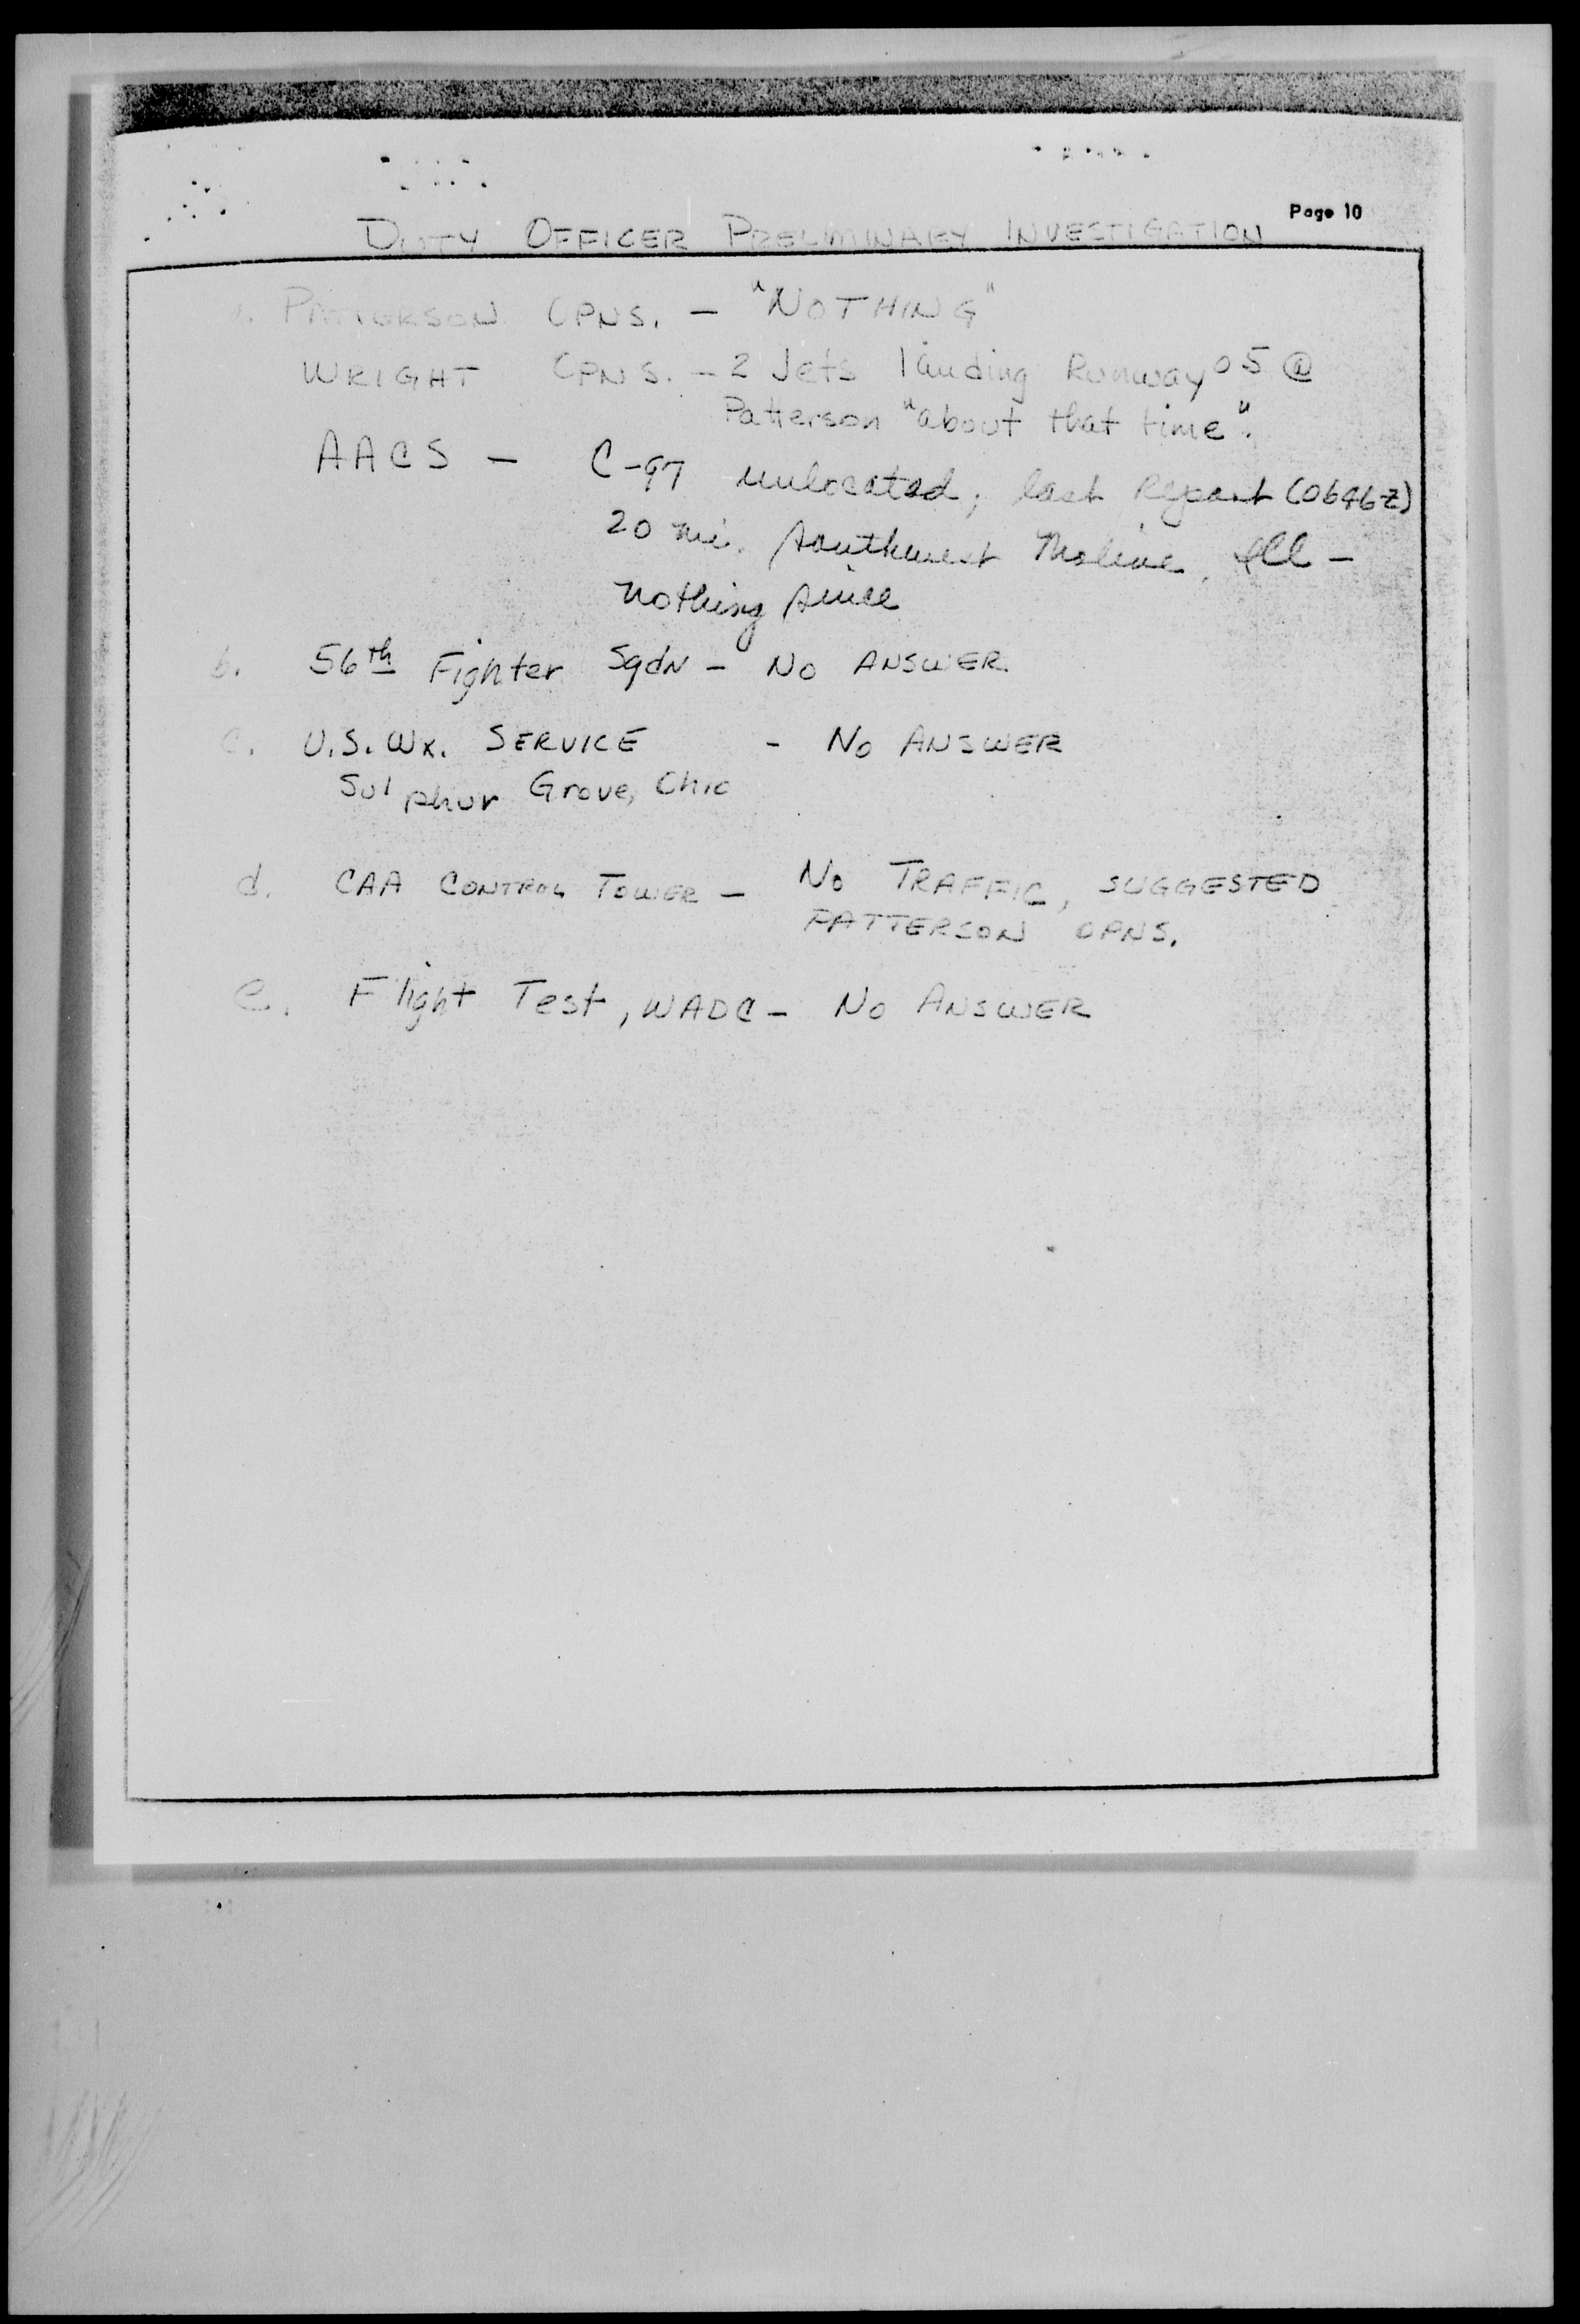 Page 10
DUTY OFFICER PRELIMINARY INVESTIGATION
a. PATTERSON OPNS. – "NOTHING"
WRIGHT OPNS. – 2 Jets landing Runway 05 @
Patterson "about that time".
AACS – C-97 unlocated; last Report (0646z)
20 mi. southwest Moline, Ill –
nothing since
b. 56th Fighter Sqdn – No ANSWER.
c. U.S. Wx. SERVICE - No ANSWER
Sulphur Grove, Ohio
d. CAA CONTROL TOWER – No TRAFFIC, SUGGESTED
PATTERSON OPNS.
e. Flight Test, WADC – No ANSWER